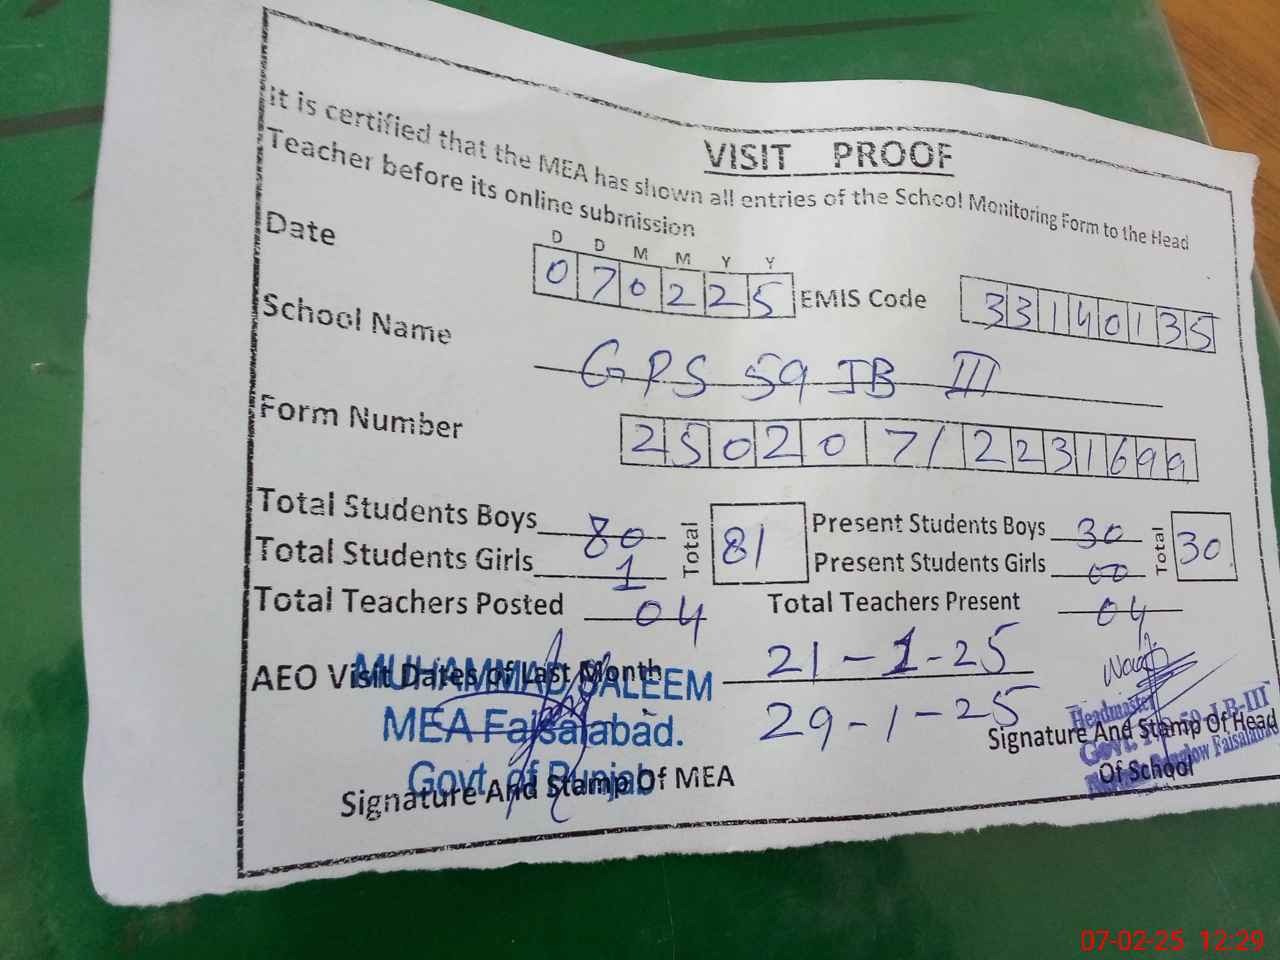 VISIT PROOF
It is certified that the MEA has shown all entries of the School Monitoring Form to the Head
Teacher before its online submission
D D M M Y Y
Date 070225 EMIS Code 33140135
School Name GPS 59 JB III
Form Number 2502071 2231699
Total Students Boys 80 Total 81 Present Students Boys 30 Total 30
Total Students Girls 1 Present Students Girls 00
Total Teachers Posted 04 Total Teachers Present 04
AEO Visit Dates of Last Month 21-1-25
29-1-25
MUHAMMAD SALEEM
MEA Faisalabad.
Govt. of Punjab
Signature And Stamp Of MEA
Headmaster
Govt. 59 J.B-III
Faisalabad
Signature And Stamp Of Head
Of School
07-02-25 12:29